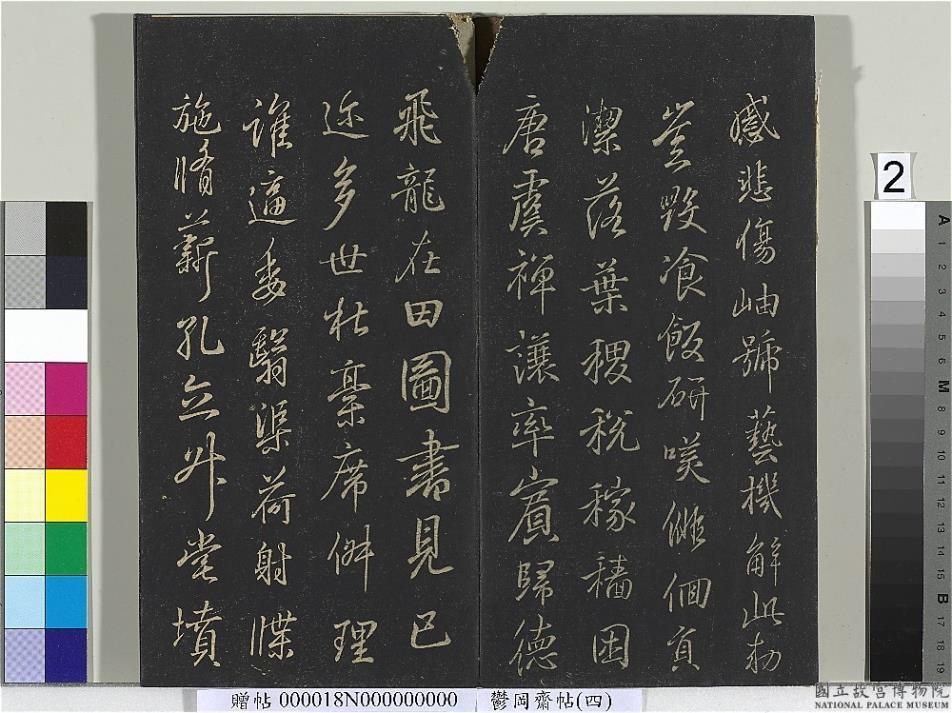 感悲傷岫號藝機解此勿
豈毀飡飯研嘆個頁
潔落葉稷稅稼穡困
唐虞禪讓率賓歸德
飛龍在田圖書見已
迩多世杜稾席併理
誰逼委翳渠荷射牒
施脩薪孔立外堂墳
2
贈帖 000018N000000000 鬱岡齋帖(四)
國立故宮博物院
NATIONAL PALACE MUSEUM
A 1 2 3 4 5 6 M 8 9 10 11 12 13 14 15 B 17 18 19